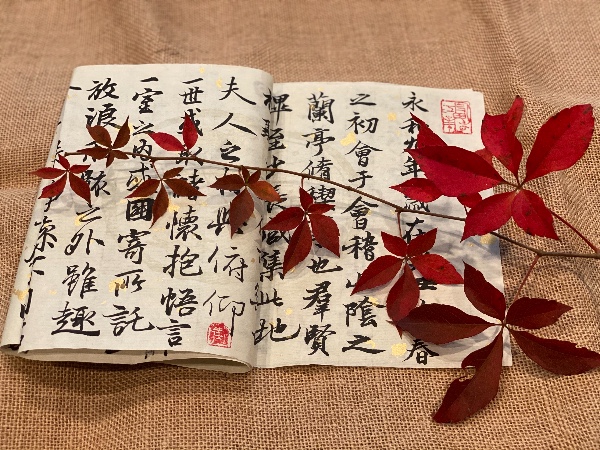 永和九年歲在春
之初會于會稽山陰之
蘭亭脩禊也羣賢
至少咸集此地
夫人之與俯仰
一世或取懷抱悟言
一室之內或因寄所託
放浪骸之外雖趣